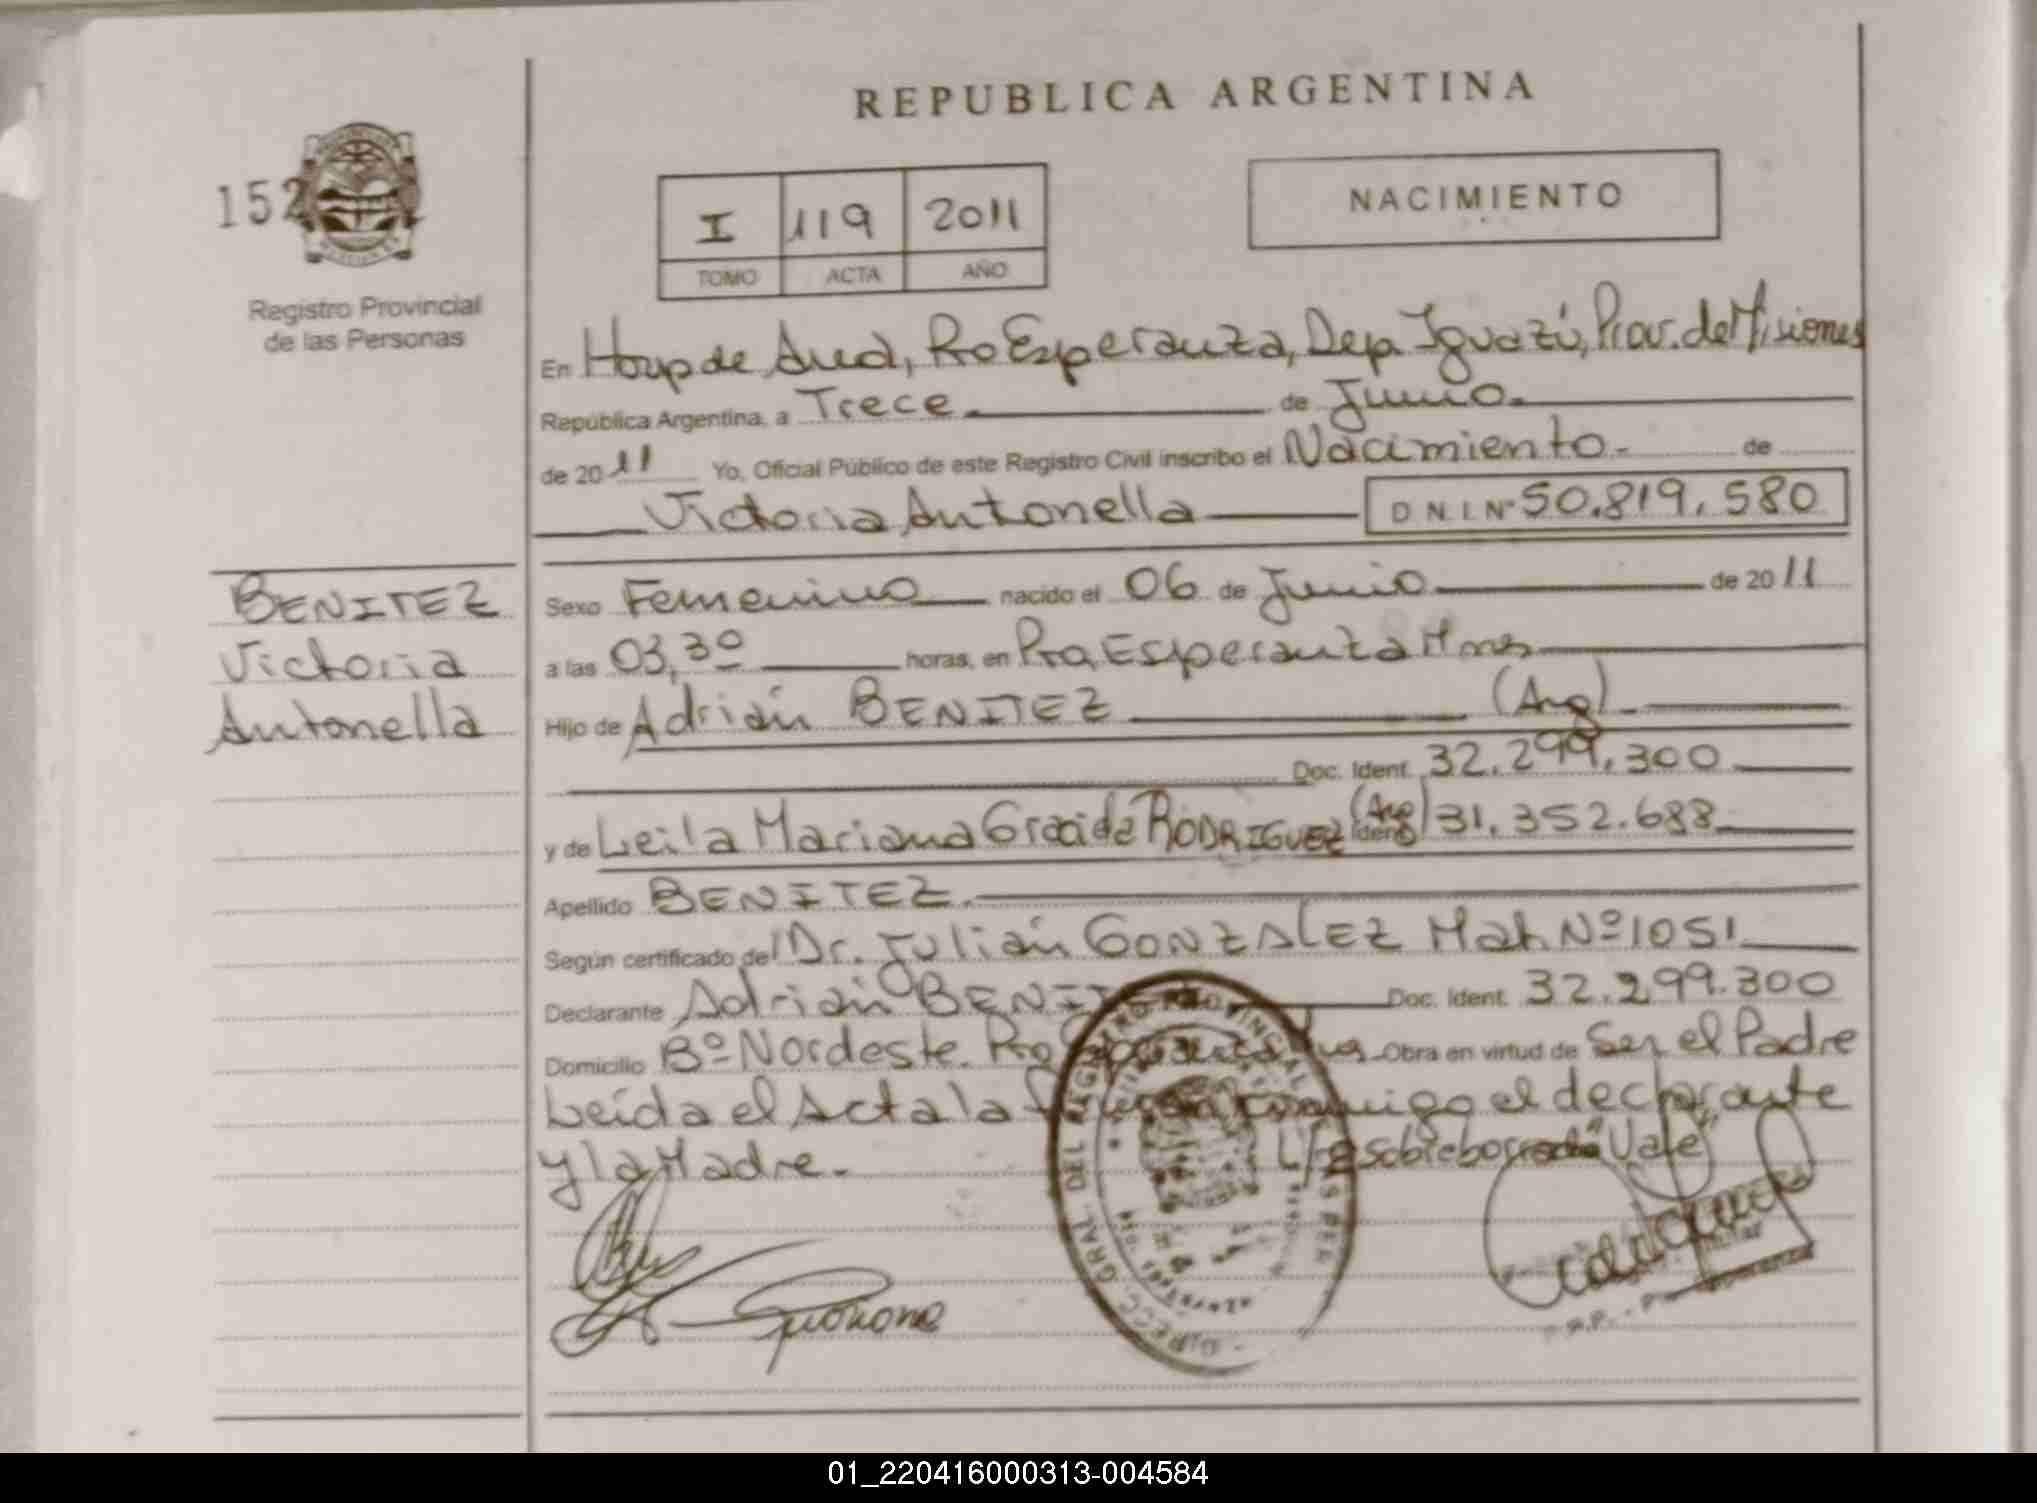 REPUBLICA ARGENTINA
152
Registro Provincial
de las Personas
I 119 2011
TOMO ACTA AÑO
NACIMIENTO
En Hosp de Area, Pto Esperanza, Dep. Iguazú, Prov. de Misiones
República Argentina, a Trece de Junio.
de 2011 Yo, Oficial Público de este Registro Civil inscribo el Nacimiento.- de
Victoria Antonella D.N.I.Nº 50.819.580
BENITEZ
Victoria
Antonella
Sexo Femenino nacido el 06 de Junio de 2011
a las 03,30 horas, en Pto, Esperanza Mnes
Hijo de Adrián BENITEZ (Arg)
Doc. Ident. 32.299.300
y de Leila Mariana Graciela RODRIGUEZ (Arg) Ident. 31.352.688
Apellido BENITEZ.
Según certificado del Dr. Julián GONZALEZ Mat. Nº 1051
Declarante Adrián Doc. Ident. 32.299.300
Domicilio Bº Nordeste. Pto Obra en virtud de Ser el Padre
Leída el Acta la conmigo el declarante
y la Madre. sobreborrado "Vale"
DIRECC. GRAL. DEL REGISTRO PROVINCIAL DE LAS PER
01_220416000313-004584